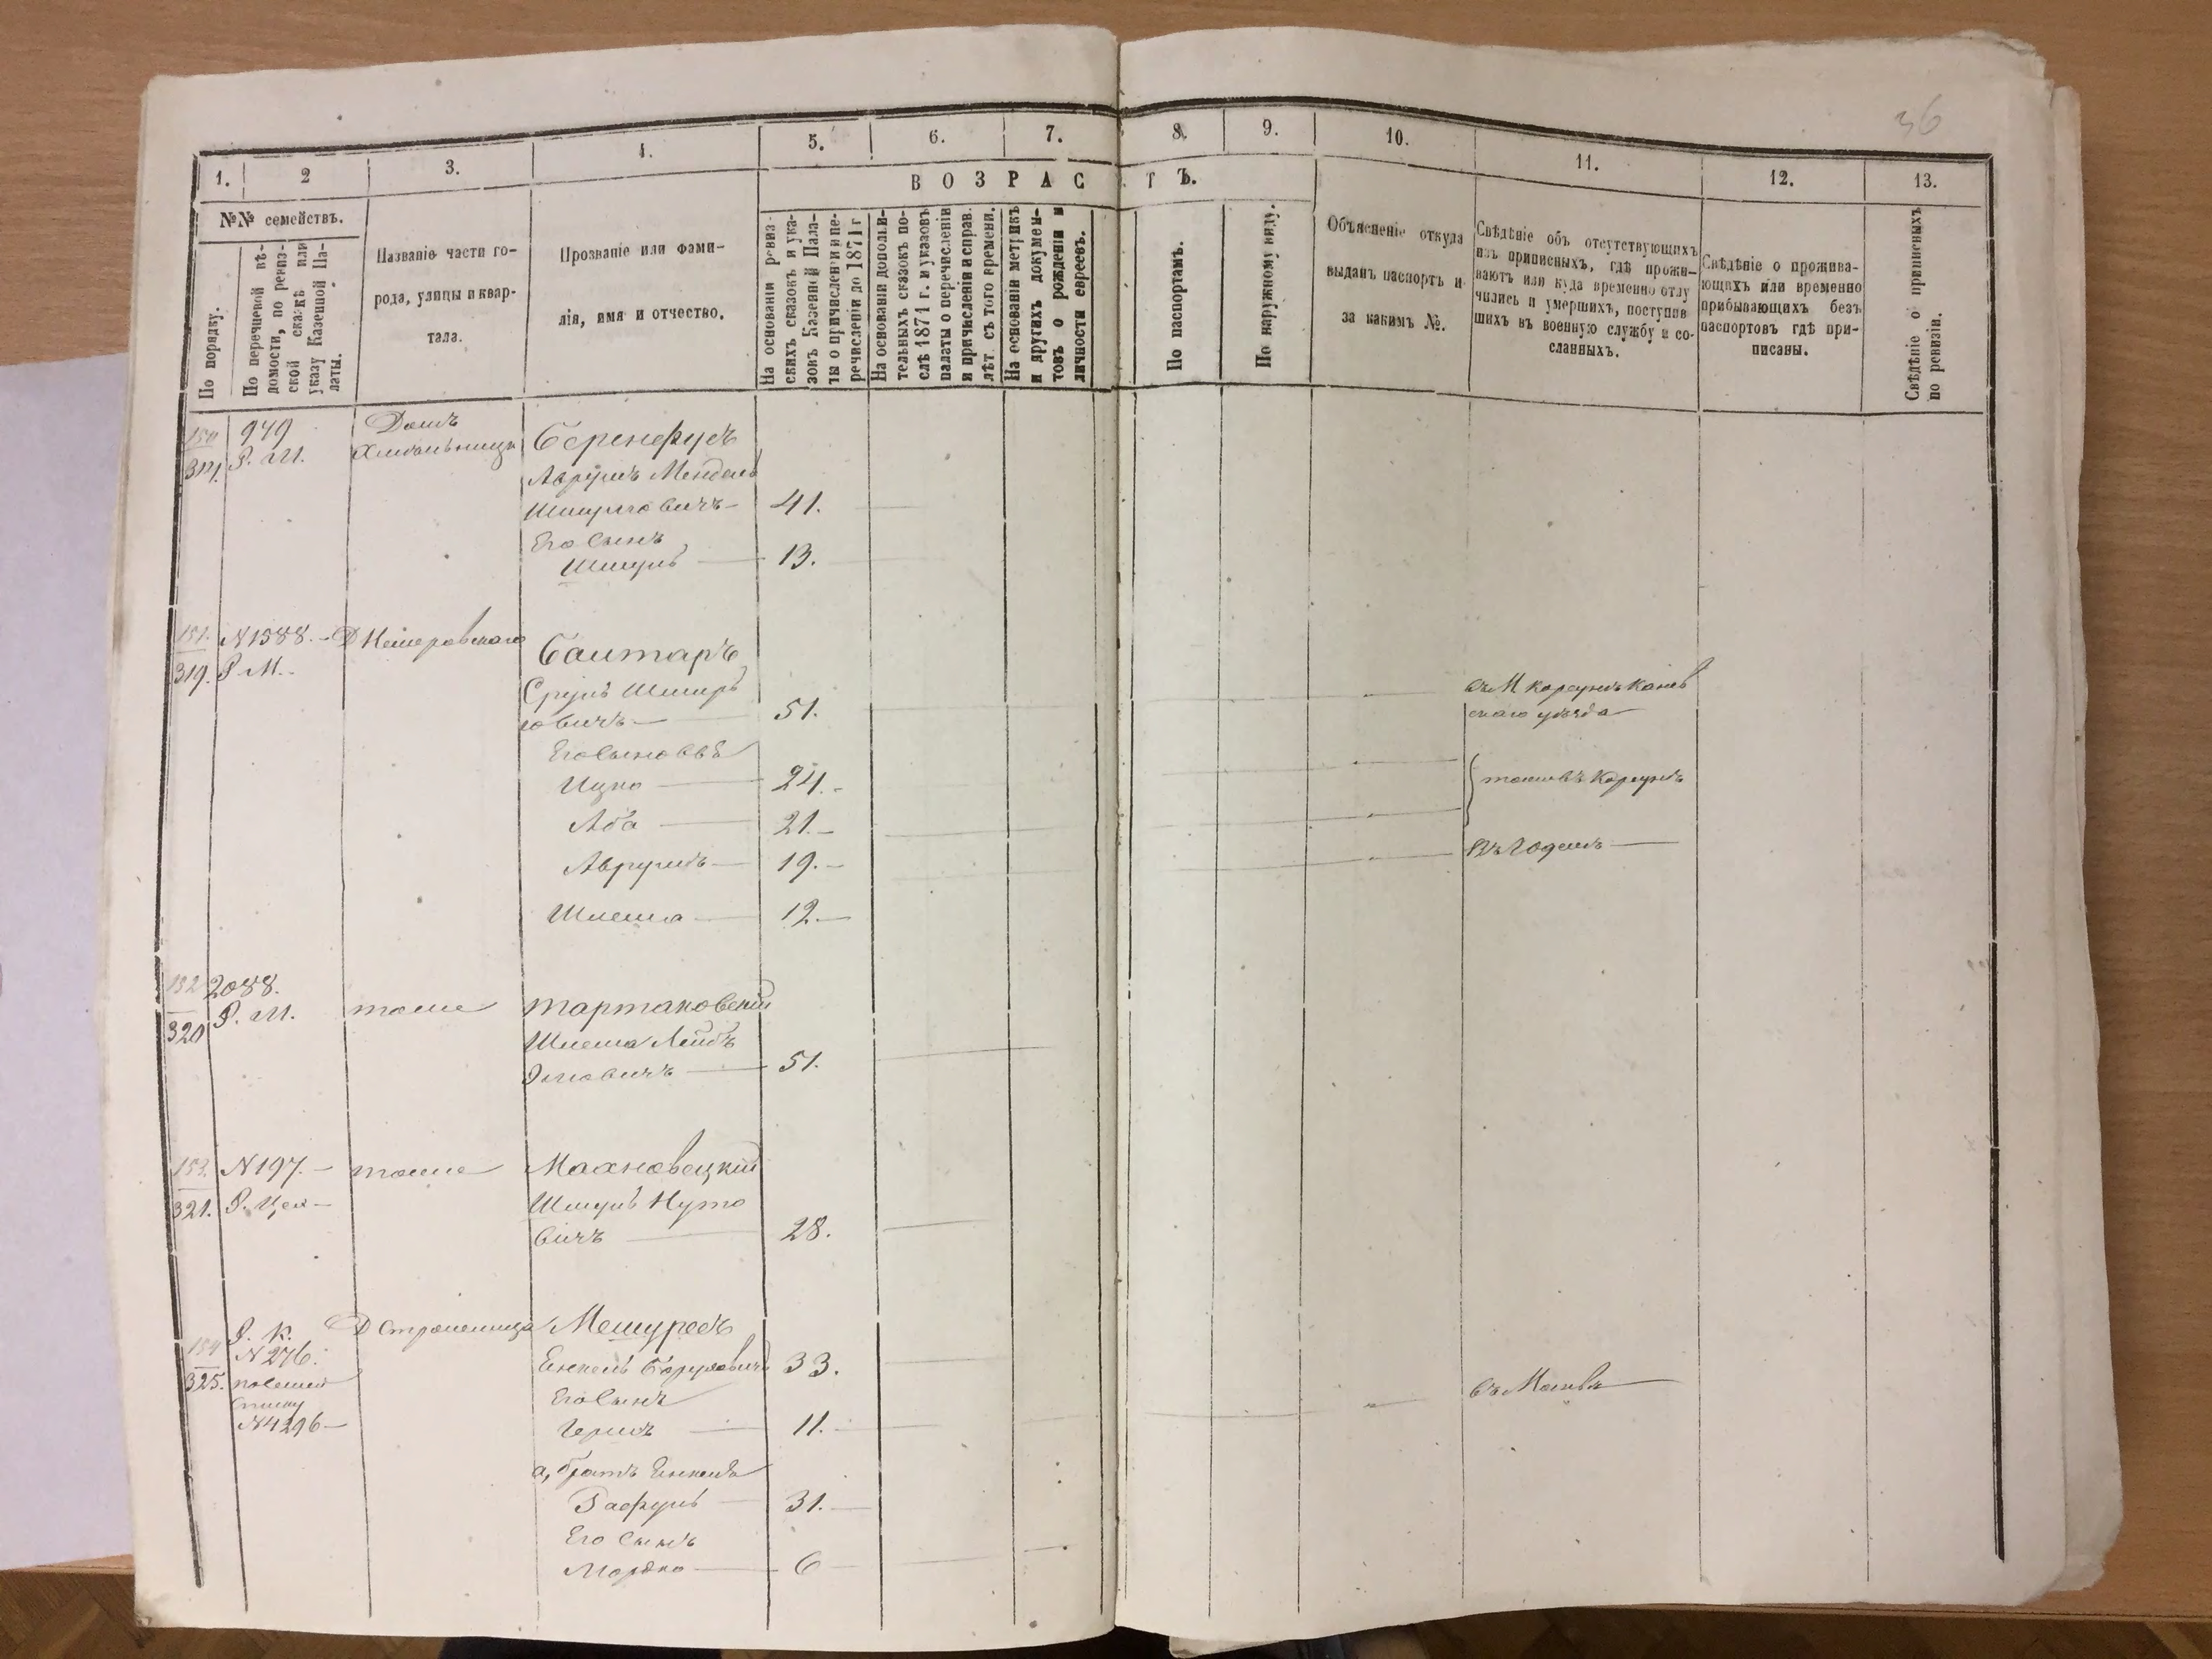 36
1.
2
3.
4.
5.
6.
7.
8.
9.
10.
11.
12.
13.
ВОЗРАСТЪ.
№№ семействъ.
По порядку.
По перечневой вѣ-
домости, по ревиз-
ской сказкѣ или
указу Казенной Па-
латы.
Названіе части го-
рода, улицы и квар-
тала.
Прозваніе или фами-
лія, имя и отчество.
На основаніи ревиз-
скихъ сказокъ и ука-
зовъ Казенной Пала-
ты о причисленіи и пе-
речисленіи до 1871 г
На основаніи дополни-
тельныхъ сказокъ по-
слѣ 1871 г. и указовъ
палаты о перечисленіи
и причисленіи и справ.
лѣт. съ того времени.
На основаніи метрикъ
и другихъ докумен-
товъ о рожденіи и
личности евреевъ.
По паспортамъ.
По наружному виду.
Объясненіе откуда
выданъ паспортъ и
за какимъ №.
Свѣдѣніе объ отсутствующихъ
изъ приписныхъ, гдѣ прожи-
ваютъ или куда временно отлу
чились и умершихъ, поступив
шихъ въ военную службу и со-
сланныхъ.
Свѣдѣніе о прожива-
ющихъ или временно
прибывающихъ безъ
паспортовъ гдѣ при-
писаны.
Свѣдѣніе о приписныхъ
по ревизіи.
150 949 Домъ
Р. М. Беренфусъ
Аврумъ Мендель
Шмулговичъ 41.
Его Сынъ
Шмуль 13.
151. N1588. Д
319. Р. М. Бантаръ
Сруль Шмир
говичъ 51. въ М Корсунѣ Канев
скаго уѣзда
Его Сыновья
Ицко 24. тоже въ Корсунѣ
Аба 21.
Аврумъ 19. Въ Одессѣ
Шлема 12.
152 2088.
320 Р. М. тоже Тартаковскій
Шлема Лейбъ
Эльовичъ 51.
153. N197. тоже Махновецкій
321. Р. Цех Шмуль Нуто
вичъ 28.
154 Р. К. Д Мешуресъ
N276.
325. Енкель Борухович 33. въ Москвѣ
посемей
списку
N4296
Его Сынъ
Гершъ 11.
а, братъ Енкеля
Рафуль 31.
Его Сынъ
Мордко 6